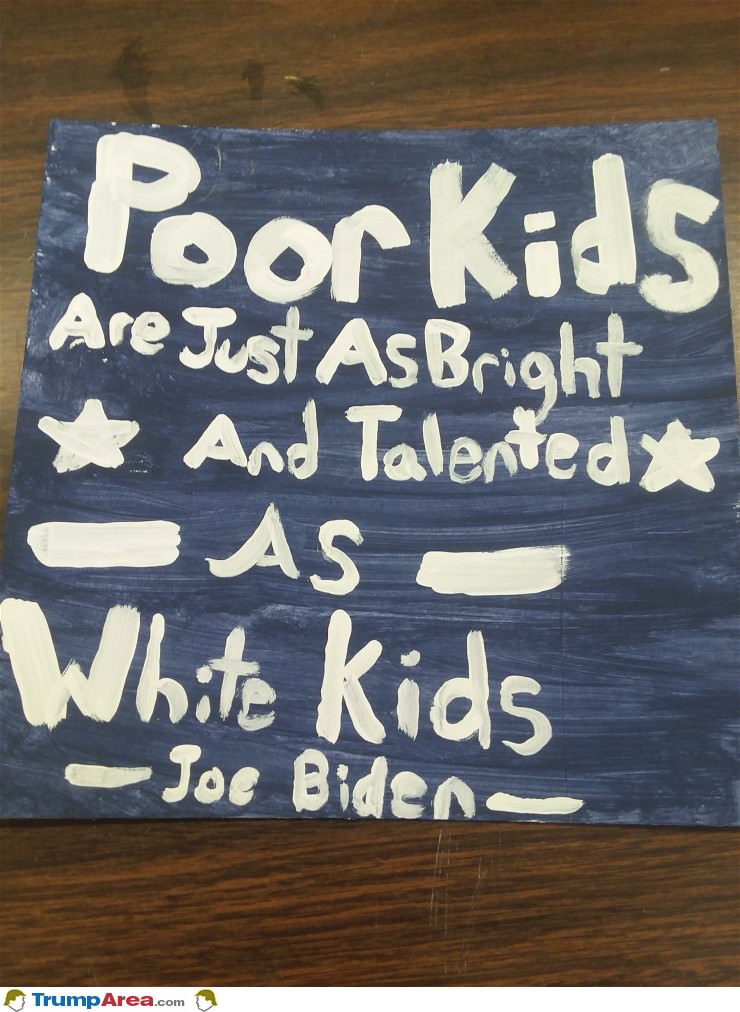 Poor Kids
Are Just As Bright
And Talented
As
White Kids
- Joe Biden -
TrumpArea.com